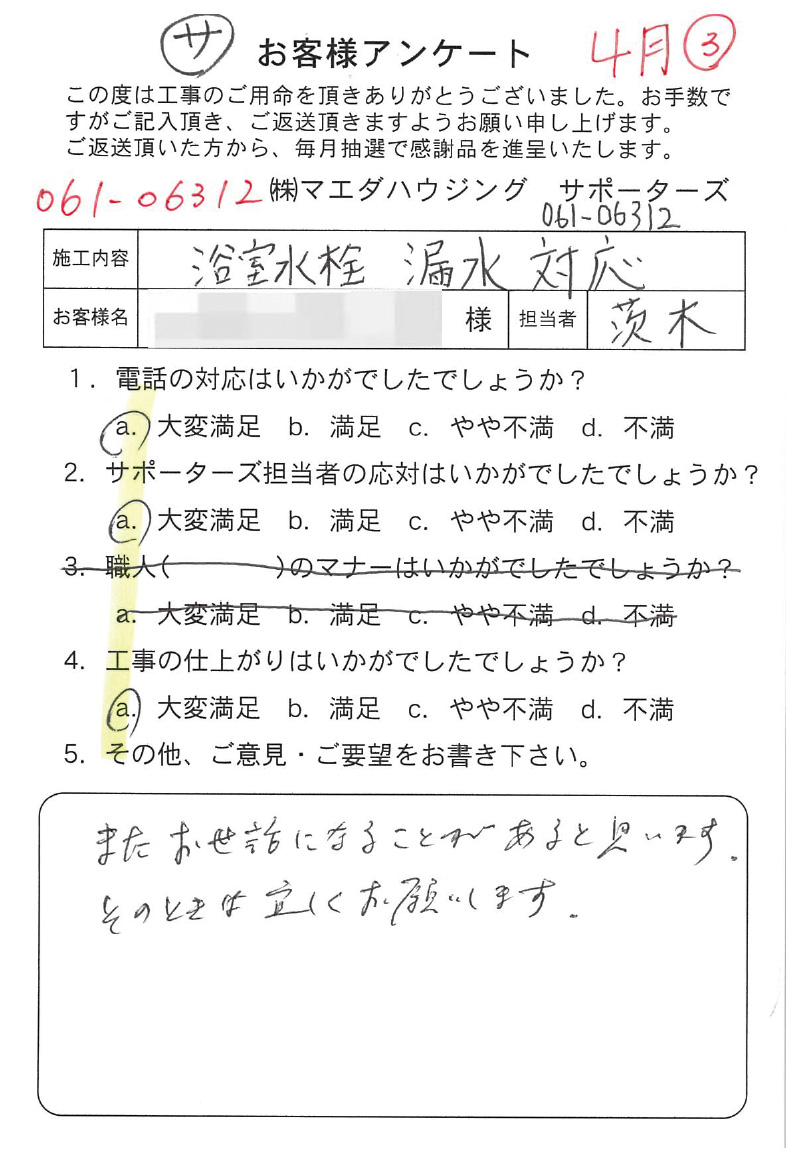 サ お客様アンケート 4月③
この度は工事のご用命を頂きありがとうございました。お手数で
すがご記入頂き、ご返送頂きますようお願い申し上げます。
ご返送頂いた方から、毎月抽選で感謝品を進呈いたします。
061-06312 ㈱マエダハウジング サポーターズ
061-06312
施工内容 浴室水栓 漏水 対応
お客様名 様 担当者 茨木
1. 電話の対応はいかがでしたでしょうか？
a. 大変満足 b. 満足 c. やや不満 d. 不満
2. サポーターズ担当者の応対はいかがでしたでしょうか？
a. 大変満足 b. 満足 c. やや不満 d. 不満
3. 職人( )のマナーはいかがでしたでしょうか？
a. 大変満足 b. 満足 c. やや不満 d. 不満
4. 工事の仕上がりはいかがでしたでしょうか？
a. 大変満足 b. 満足 c. やや不満 d. 不満
5. その他、ご意見・ご要望をお書き下さい。
またお世話になることがあると思います.
そのときは宜しくお願いします.